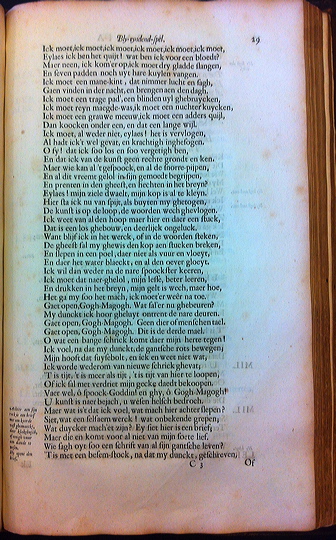 Bly-eyndend-spel. 19
Ick moet, ick moet, ick moet, ick moet, ick moet, ick moet,
Eylaes ick ben het quijt! wat ben ick voor een bloedt?
Maer neen, ick kom'er op, ick moet dry gladde slangen,
En seven padden noch uyt hare kuylen vangen.
Ick moet een mane-kint, dat nimmer lucht en sagh,
Gaen vinden in der nacht, en brengen aen den dagh.
Ick moet een trage pad, een blinden uyl ghebruycken,
Ick moet reyn maegde-was, ick moet een nuchter kuycken,
Ick moet een grauwe meeuw, ick moet een adders quijl,
Dan koocken onder een, en dat een lange wijl.
Ick moet, al weder niet, eylaes! het is vervlogen,
Al hadt ick't wel gevat, en krachtigh inghesogen.
O sy! dat ick soo los en soo vergetigh ben,
En dat ick van de kunst geen rechte gronde en ken.
Maer wie kan al 't gespoock, en al de
En al dit vreemt gelol in sijn gemoedt begrijpen,
En prenten in den gheest, en hechten in het breyn?
Eylaes! mijn ziele dwaelt, mijn kop is al te kleyn.
Hier sta ick nu van spijt, als buyten my ghetogen,
De kunst is op de loop, de woorden wech ghevlogen.
Ick weet van al den hoop maer hier en daer een stuck,
Dat is een los ghebouw, en deerlijck ongeluck.
Want blijf ick in het werck, of in de woorden steken,
De gheest sal my ghewis den kop aen stucken breken,
En slepen in een poel, daer niet als vuur en vloeyt,
En daer het water blaeckt, en al den oever gloeyt.
Ick wil dan weder na de nare spoockster keeren,
Ick moet dat naer-ghelol, mijn lesse, beter leeren,
En drucken in het breyn, mijn gelt is wech, mae hoe,
Het ga my soo het mach, ick moet'er weer na toe.
Gaet open, Gogh-Magogh. Wat sal'er nu ghebeuren?
My dunckt ick hoor gheluyt ontrent de nare deuren.
Gaet open, Gogh-Magogh. Geen dier of menschen tael.
Gaet open, Gogh-Magogh. Dit is de derde mael.
O wat een bange schrick komt daer mijn herte tegen!
Ick voel, na dat my dunckt, de gantsche rots bewegen;
Mijn hooft dat suysebolt, en ick en weet niet wat,
Ick worde wederom van nieuwe schrick ghevat,
'T is tijt, 't is meer als tijt, 't is tijt van hier te loopen,
Of ick sal met verdriet mijn geckz daedt bekoopen.
Vaer wel, ô spoock-Goddin! en ghy, ô Gogh-Magogh!
U kunst is naer bejach, u wesen helsch bedroch.
Maer wat is't dat ick voel, wat mach hier achter slepen?
Siet, wat een selsaem werck! wat onbekende grepen,
Wat duycker mach'et zijn? Ey siet hier is een brief,
Maer die en komt voor al niet van mijn soete lief.
Wie sagh oyt soo een schrift van al sijn gantsche leven?
'T is met een besem-stock, na dat my dunckt, geschreven,
C 3 Of